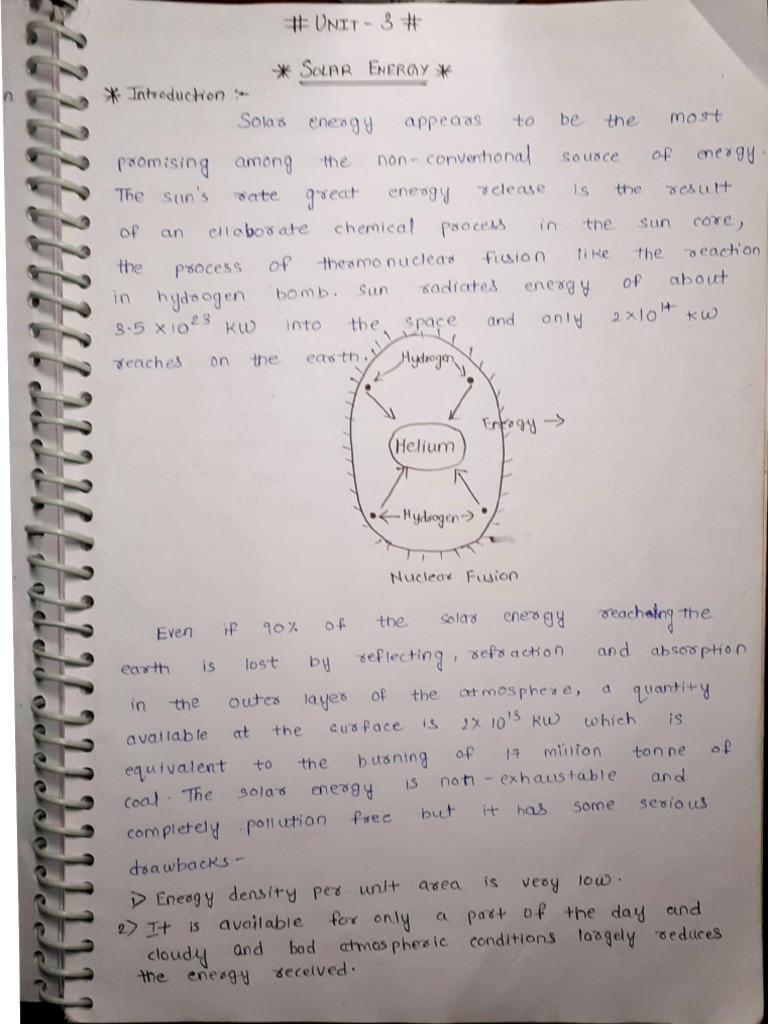 # UNIT - 3 #
* SOLAR ENERGY *
* Introduction :-
Solar energy appears to be the most
promising among the non-conventional source of energy.
The sun's rate great energy release is the result
of an ellaborate chemical process in the sun core,
the process of thermonuclear fusion like the reaction
in hydrogen bomb. Sun radiates energy of about
3.5 × 10²³ KW into the space and only 2×10¹⁴ KW
reaches on the earth.
Hydrogen
Energy →
Helium
Hydrogen
Nuclear Fusion
Even if 90% of the solar energy reaching the
earth is lost by reflecting, refraction and absorption
in the outer layer of the atmosphere, a quantity
available at the surface is 2×10¹³ KW which is
equivalent to the burning of 17 million tonne of
coal. The solar energy is non-exhaustable and
completely pollution free but it has some serious
drawbacks-
1) Energy density per unit area is very low.
2) It is available for only a part of the day and
cloudy and bad atmospheric conditions largely reduces
the energy received.